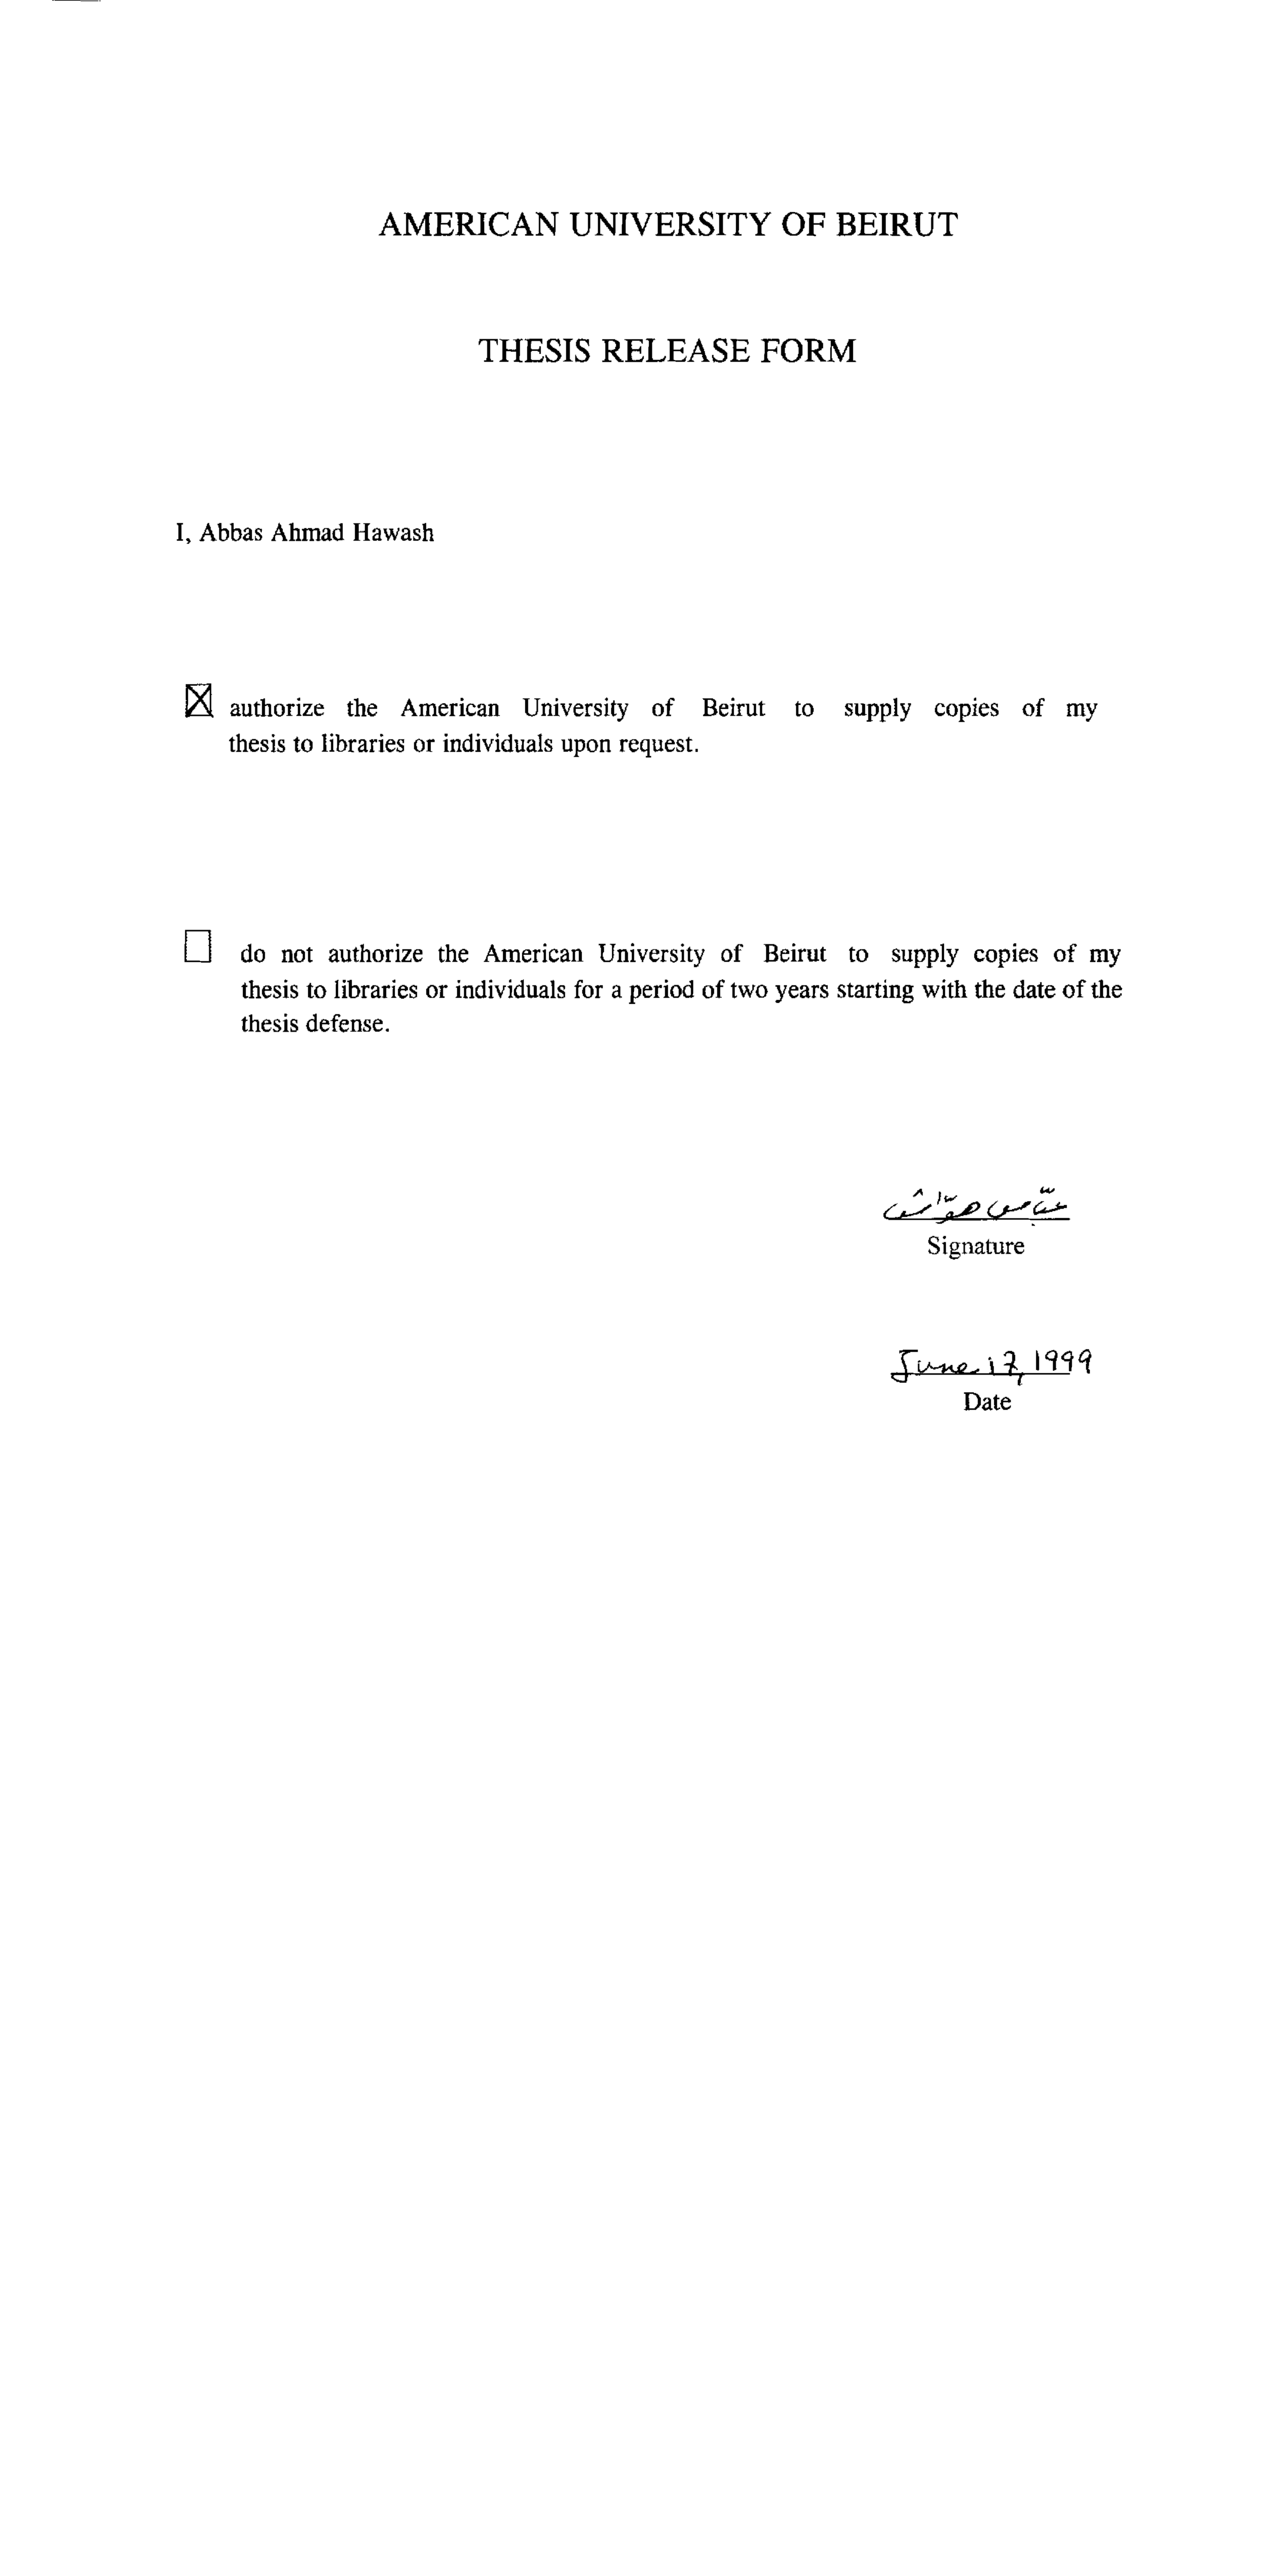 AMERICAN UNIVERSITY OF BEIRUT
THESIS RELEASE FORM
I, Abbas Ahmad Hawash
authorize the American University of Beirut to supply copies of my
thesis to libraries or individuals upon request.
do not authorize the American University of Beirut to supply copies of my
thesis to libraries or individuals for a period of two years starting with the date of the
thesis defense.
عبّاس هوّاش
Signature
June 17, 1999
Date